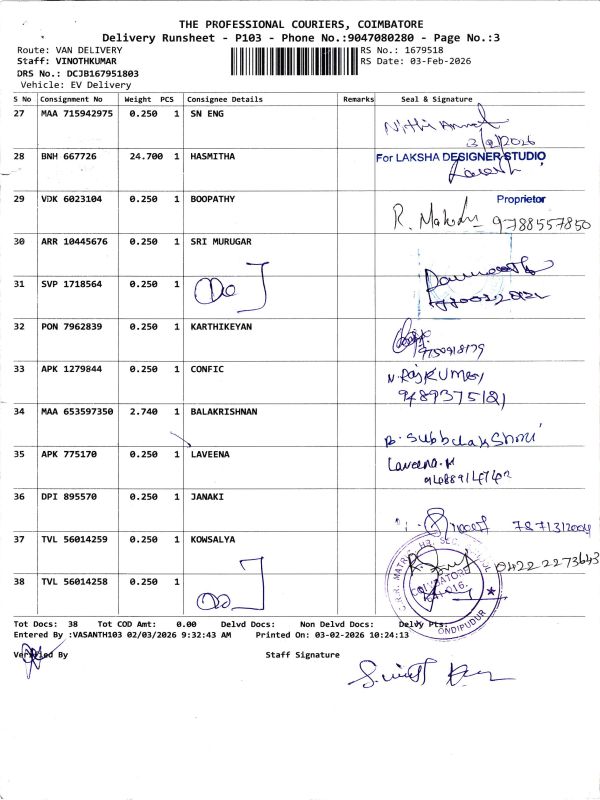 THE PROFESSIONAL COURIERS, COIMBATORE
Delivery Runsheet - P103 - Phone No.:9047080280 - Page No.:3
Route: VAN DELIVERY RS No.: 1679518
Staff: VINOTHKUMAR RS Date: 03-Feb-2026
DRS No.: DCJB167951803
Vehicle: EV Delivery
S No Consignment No Weight PCS Consignee Details Remarks Seal & Signature
27 MAA 715942975 0.250 1 SN ENG
28 BNH 667726 24.700 1 HASMITHA For LAKSHA DESIGNER STUDIO
Proprietor
29 VDK 6023104 0.250 1 BOOPATHY R. 9788557850
30 ARR 10445676 0.250 1 SRI MURUGAR
31 SVP 1718564 0.250 1
32 PON 7962839 0.250 1 KARTHIKEYAN
33 APK 1279844 0.250 1 CONFIC N. RAJKUMAR
9489375121
34 MAA 653597350 2.740 1 BALAKRISHNAN
35 APK 775170 0.250 1 LAVEENA Laveena.M
36 DPI 895570 0.250 1 JANAKI
37 TVL 56014259 0.250 1 KOWSALYA 0422 2273643
38 TVL 56014258 0.250 1
COIMBATORE
ONDIPUDUR
Tot Docs: 38 Tot COD Amt: 0.00 Delvd Docs: Non Delvd Docs: Delvy Pts:
Entered By :VASANTH103 02/03/2026 9:32:43 AM Printed On: 03-02-2026 10:24:13
Verified By Staff Signature